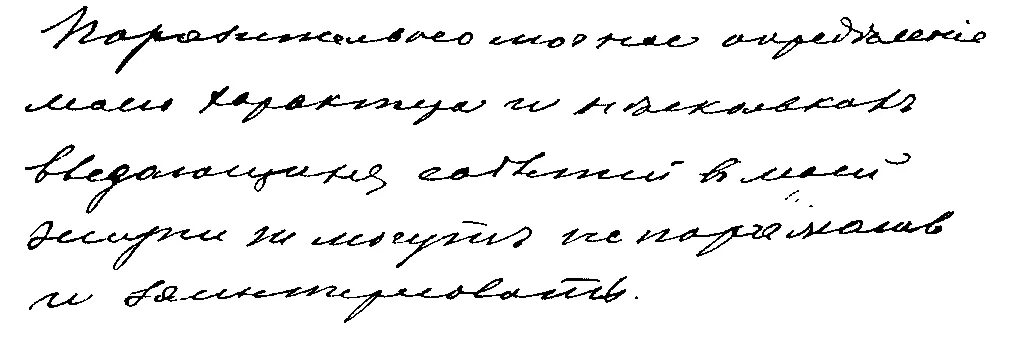 Поразительно точное определѣніе
моего характера и нѣсколькихъ
выдающихся событій въ моей
жизни не могутъ не поражать
и заинтересовать.